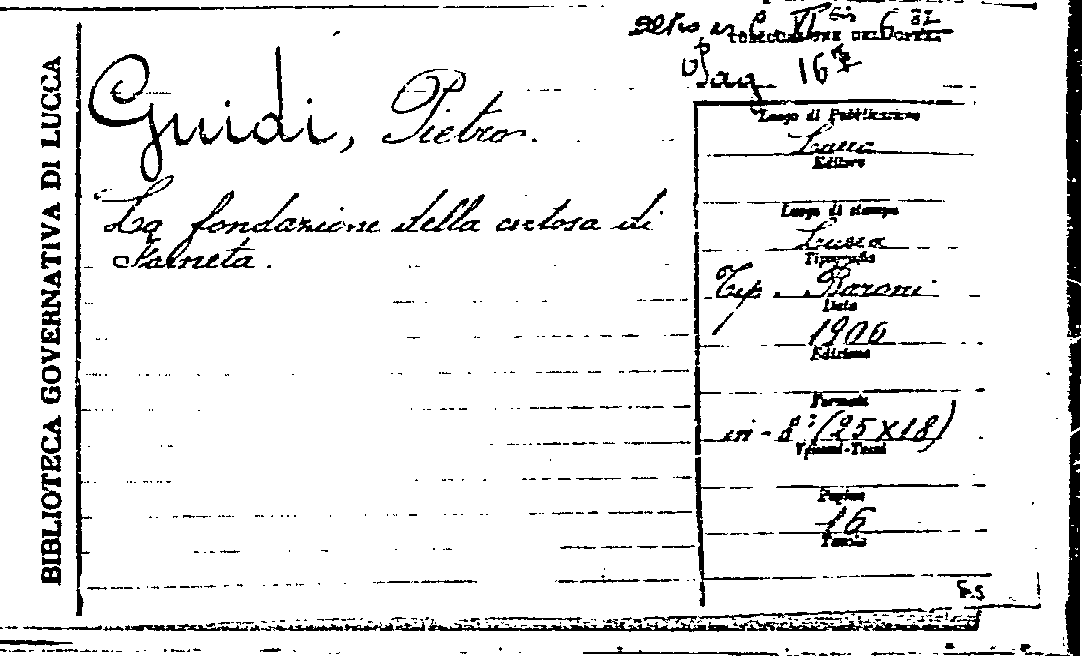 BIBLIOTECA GOVERNATIVA DI LUCCA
altro es. C VI 6
COLLOCAZIONE DELL'OPERA
Pag 16
Guidi, Pietro.
La fondazione della certosa di
Farneta.
Luogo di Pubblicazione
Lucca
Editore
Luogo di stampa
Lucca
Tipografia
Tip. Baroni
Data
1900
Edizione
Formato
in-8° (25x18)
Volumi-Tomi
Pagine
16
Tavole
F.S